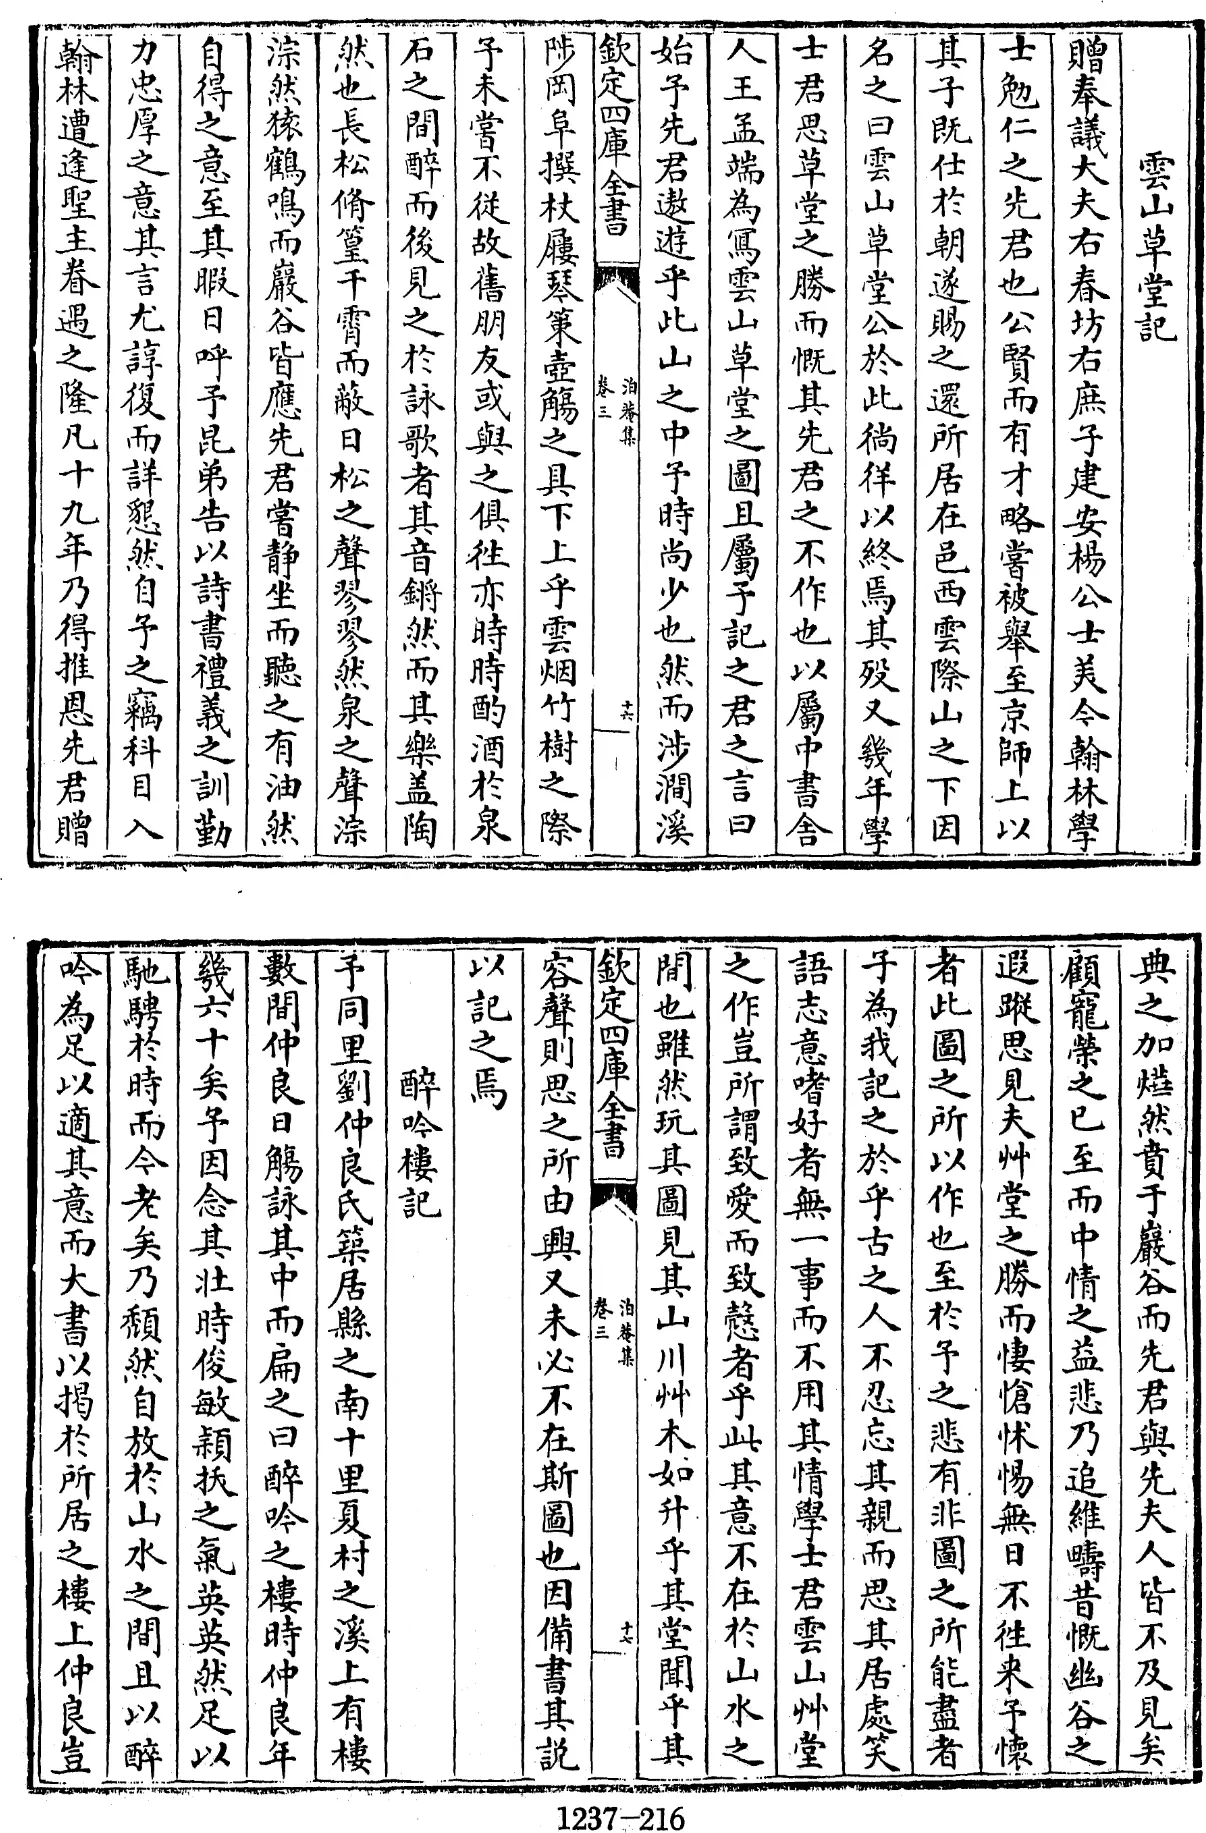 雲山草堂記
贈奉議大夫右春坊右庶子建安楊公士美今翰林學
士勉仁之先君也公賢而有才略嘗被舉至京師上以
其子既仕於朝遂賜之還所居在邑西雲際山之下因
名之曰雲山草堂公於此徜徉以終焉其歿又幾年學
士君思草堂之勝而慨其先君之不作也以屬中書舍
人王孟端為寫雲山草堂之圖且屬予記之君之言曰
始予先君遨遊乎此山之中予時尚少也然而涉澗溪
欽定四庫全書
泊菴集
卷三
十六
陟岡阜撰杖屨琴策壺觴之具下上乎雲烟竹樹之際
予未嘗不從故舊朋友或與之俱徃亦時時酌酒於泉
石之間醉而後見之於詠歌者其音鏘然而其樂盖陶
然也長松脩篁干霄而蔽日松之聲翏翏然泉之聲淙
淙然猿鶴鳴而巖谷皆應先君嘗静坐而聽之有油然
自得之意至其暇日呼予昆弟告以詩書禮義之訓勤
力忠厚之意其言尤諄復而詳懇然自予之竊科目入
翰林遭逢聖主眷遇之隆凡十九年乃得推恩先君贈
典之加爀然賁于巖谷而先君與先夫人皆不及見矣
顧寵榮之已至而中情之益悲乃追維疇昔慨幽谷之
遐蹤思見夫艸堂之勝而悽愴怵惕無日不徃来予懷
者此圖之所以作也至於予之悲有非圖之所能盡者
子為我記之於乎古之人不忍忘其親而思其居處笑
語志意嗜好者無一事而不用其情學士君雲山艸堂
之作豈所謂致愛而致慤者乎此其意不在於山水之
間也雖然玩其圖見其山川艸木如升乎其堂聞乎其
欽定四庫全書
泊菴集
卷三
十七
容聲則思之所由興又未必不在斯圖也因備書其説
以記之焉
醉吟樓記
予同里劉仲良氏築居縣之南十里夏村之溪上有樓
數間仲良日觴詠其中而扁之曰醉吟之樓時仲良年
幾六十矣予因念其壯時俊敏穎拔之氣英英然足以
馳騁於時而今老矣乃頹然自放於山水之間且以醉
吟為足以適其意而大書以揭於所居之樓上仲良豈
1237-216